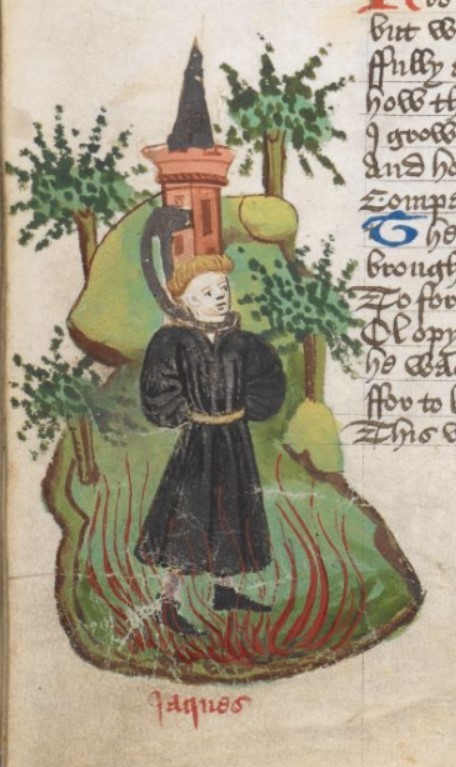 but w
ffully a
how th
I grow
And ho
Compa
The
brough
To for
Clopy
he was
ffor to b
This w
Jaques